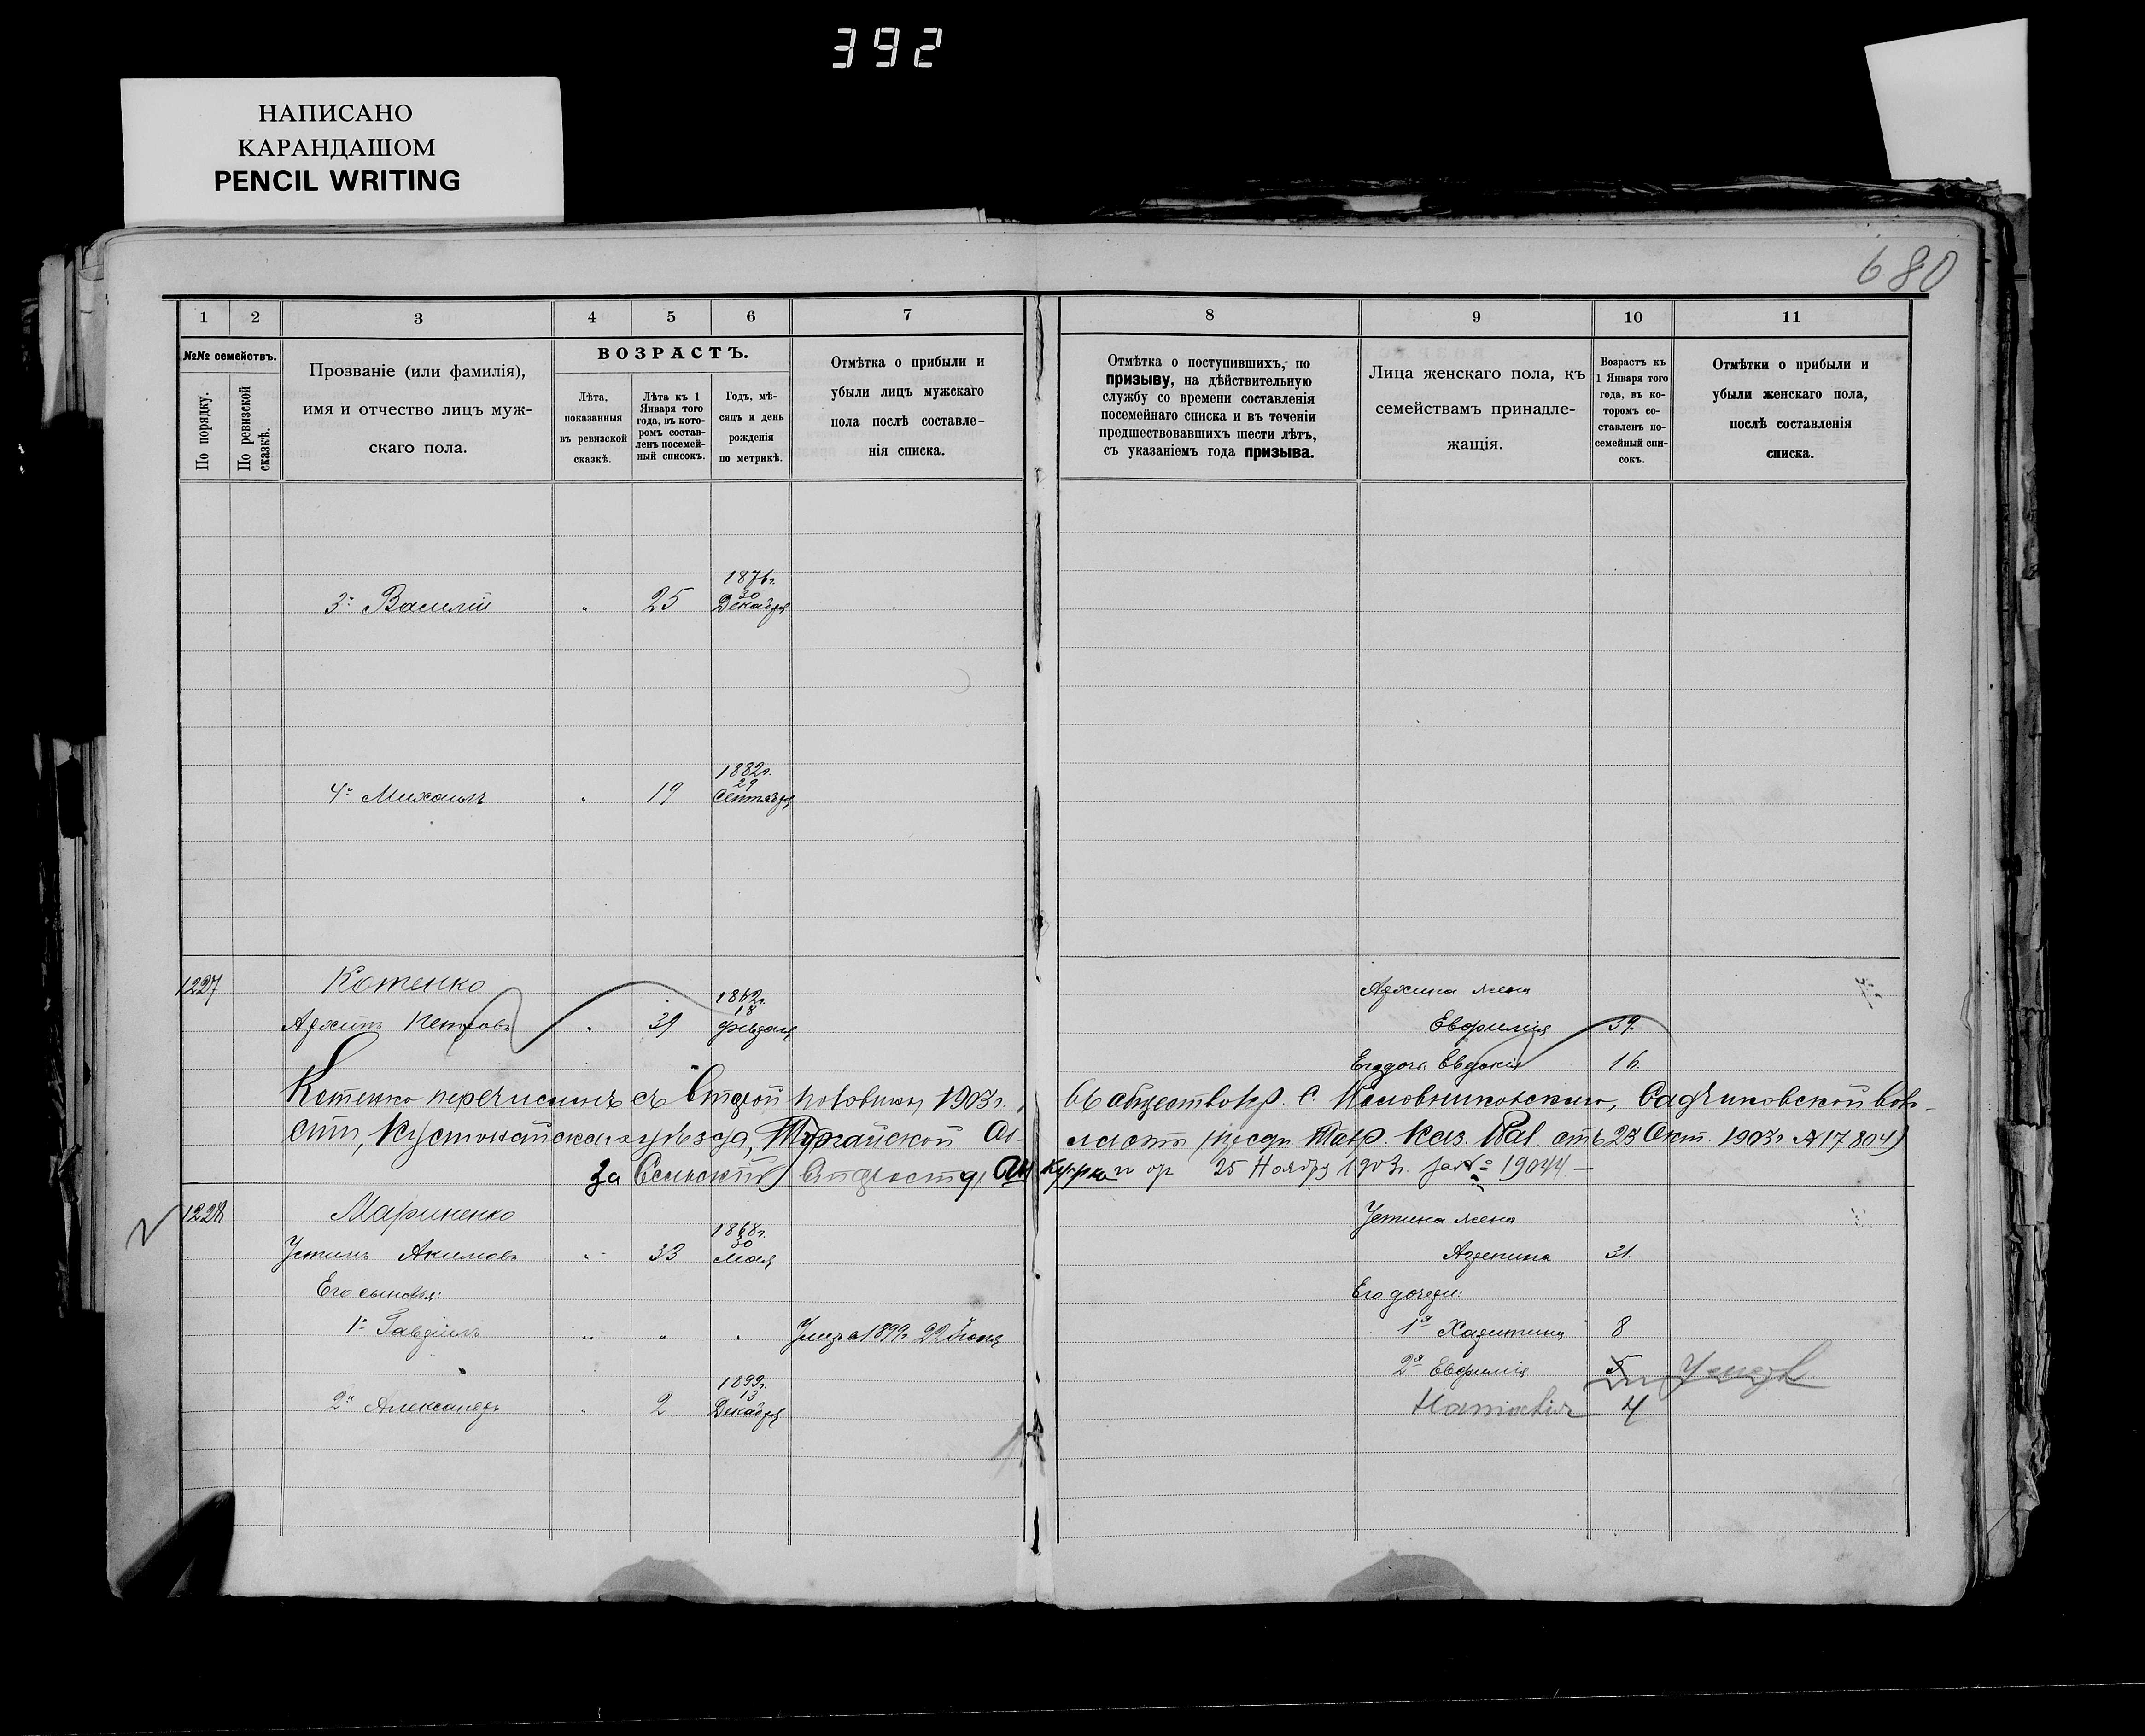 392
НАПИСАНО
КАРАНДАШОМ
PENCIL WRITING
680
1 2 3 4 5 6 7 8 9 10 11
№№ семействъ.
По порядку.
По ревизской сказкѣ.
Прозваніе (или фамилія),
имя и отчество лицъ муж-
скаго пола.
ВОЗРАСТЪ.
Лѣта,
показанныя
въ ревизской
сказкѣ.
Лѣта къ 1
Января того
года, въ кото-
ромъ состав-
ленъ посемей-
ный списокъ.
Годъ, мѣ-
сяцъ и день
рожденія
по метрикѣ.
Отмѣтка о прибыли и
убыли лицъ мужскаго
пола послѣ составле-
нія списка.
Отмѣтка о поступившихъ, по
призыву, на дѣйствительную
службу со времени составленія
посемейнаго списка и въ теченіи
предшествовавшихъ шести лѣтъ,
съ указаніемъ года призыва.
Лица женскаго пола, къ
семействамъ принадле-
жащія.
Возрастъ къ
1 Января того
года, въ ко-
торомъ со-
ставленъ по-
семейный спи-
сокъ.
Отмѣтки о прибыли и
убыли женскаго пола,
послѣ составленія
списка.
1876г.
30
3й Василій " 25 Декабря
1882г.
29
4й Михаилъ " 19 Сентября
1227 Котенко
1862г.
18
Архипъ Петровъ " 39 Февраля
Архипа жена
Евфимія 39.
Его дочь Евдокія 16.
Котенко перечисленъ съ Второй половины 1903г. въ общество кр. с. Садчиковской вол-
сти, Кустанайскаго уѣзда, Тургайской об- ласти Тавр. Каз. Пал. отъ 23 Окт. 1903г №17804)
За Сельскій 25 Ноября 1903г. за № 19044 —
1228 Мариненко
1868г.
30
Устимъ Акимовъ " 33 Мая
Устима жена
Агрипина 31.
Его сыновья:
Его дочери:
1й Гавріилъ " " " Умеръ 1899г 22 Іюня
1я Харитина 8
2я Евфимія 5
1899г.
13
2й Александръ " 2 Декабря
4